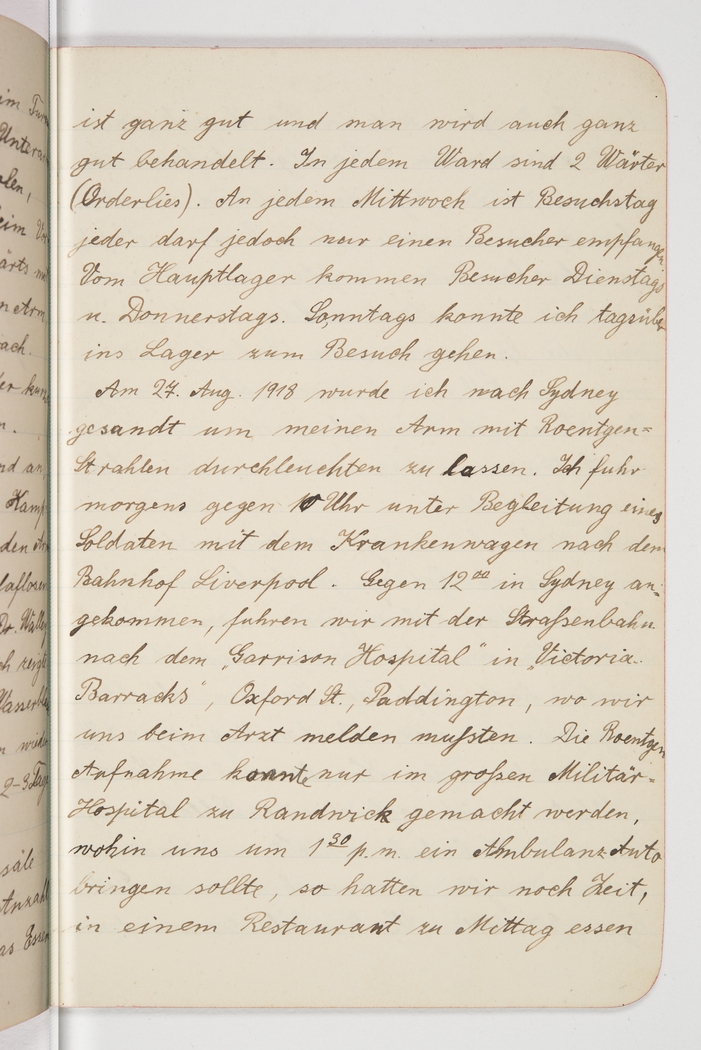 ist ganz gut und man wird auch ganz
gut behandelt. In jedem Ward sind 2 Wärter
(Orderlies). An jedem Mittwoch ist Besuchstag
jeder darf jedoch nur einen Besucher empfangen
Vom Hauptlager kommen Besucher Dienstags
u. Donnerstags. Sonntags konnte ich tagsüber
ins Lager zum Besuch gehen.
Am 27. Aug. 1918 wurde ich nach Sydney
gesandt um meinen Arm mit Roentgen=
Strahlen durchleuchten zu lassen. Ich fuhr
morgens gegen 10 Uhr unter Begleitung eines
Soldaten mit dem Krankenwagen nach dem
Bahnhof Liverpool. Gegen 12⁰⁰ in Sydney an-
gekommen, fuhren wir mit der Straßenbahn
nach dem „Garrison Hospital" in „Victoria
Barracks", Oxford St., Paddington, wo wir
uns beim Arzt melden mußten. Die Roentgen
Aufnahme konnte nur im großen Militär-
Hospital zu Randwick gemacht werden,
wohin uns um 1³⁰ p.m. ein Ambulanz-Auto
bringen sollte, so hatten wir noch Zeit,
in einem Restaurant zu Mittag essen
im
Unter
beim
nach.
n.
nd an
Kamp
Dr.
2-3 Tag
säle
Anzahl
as Essen